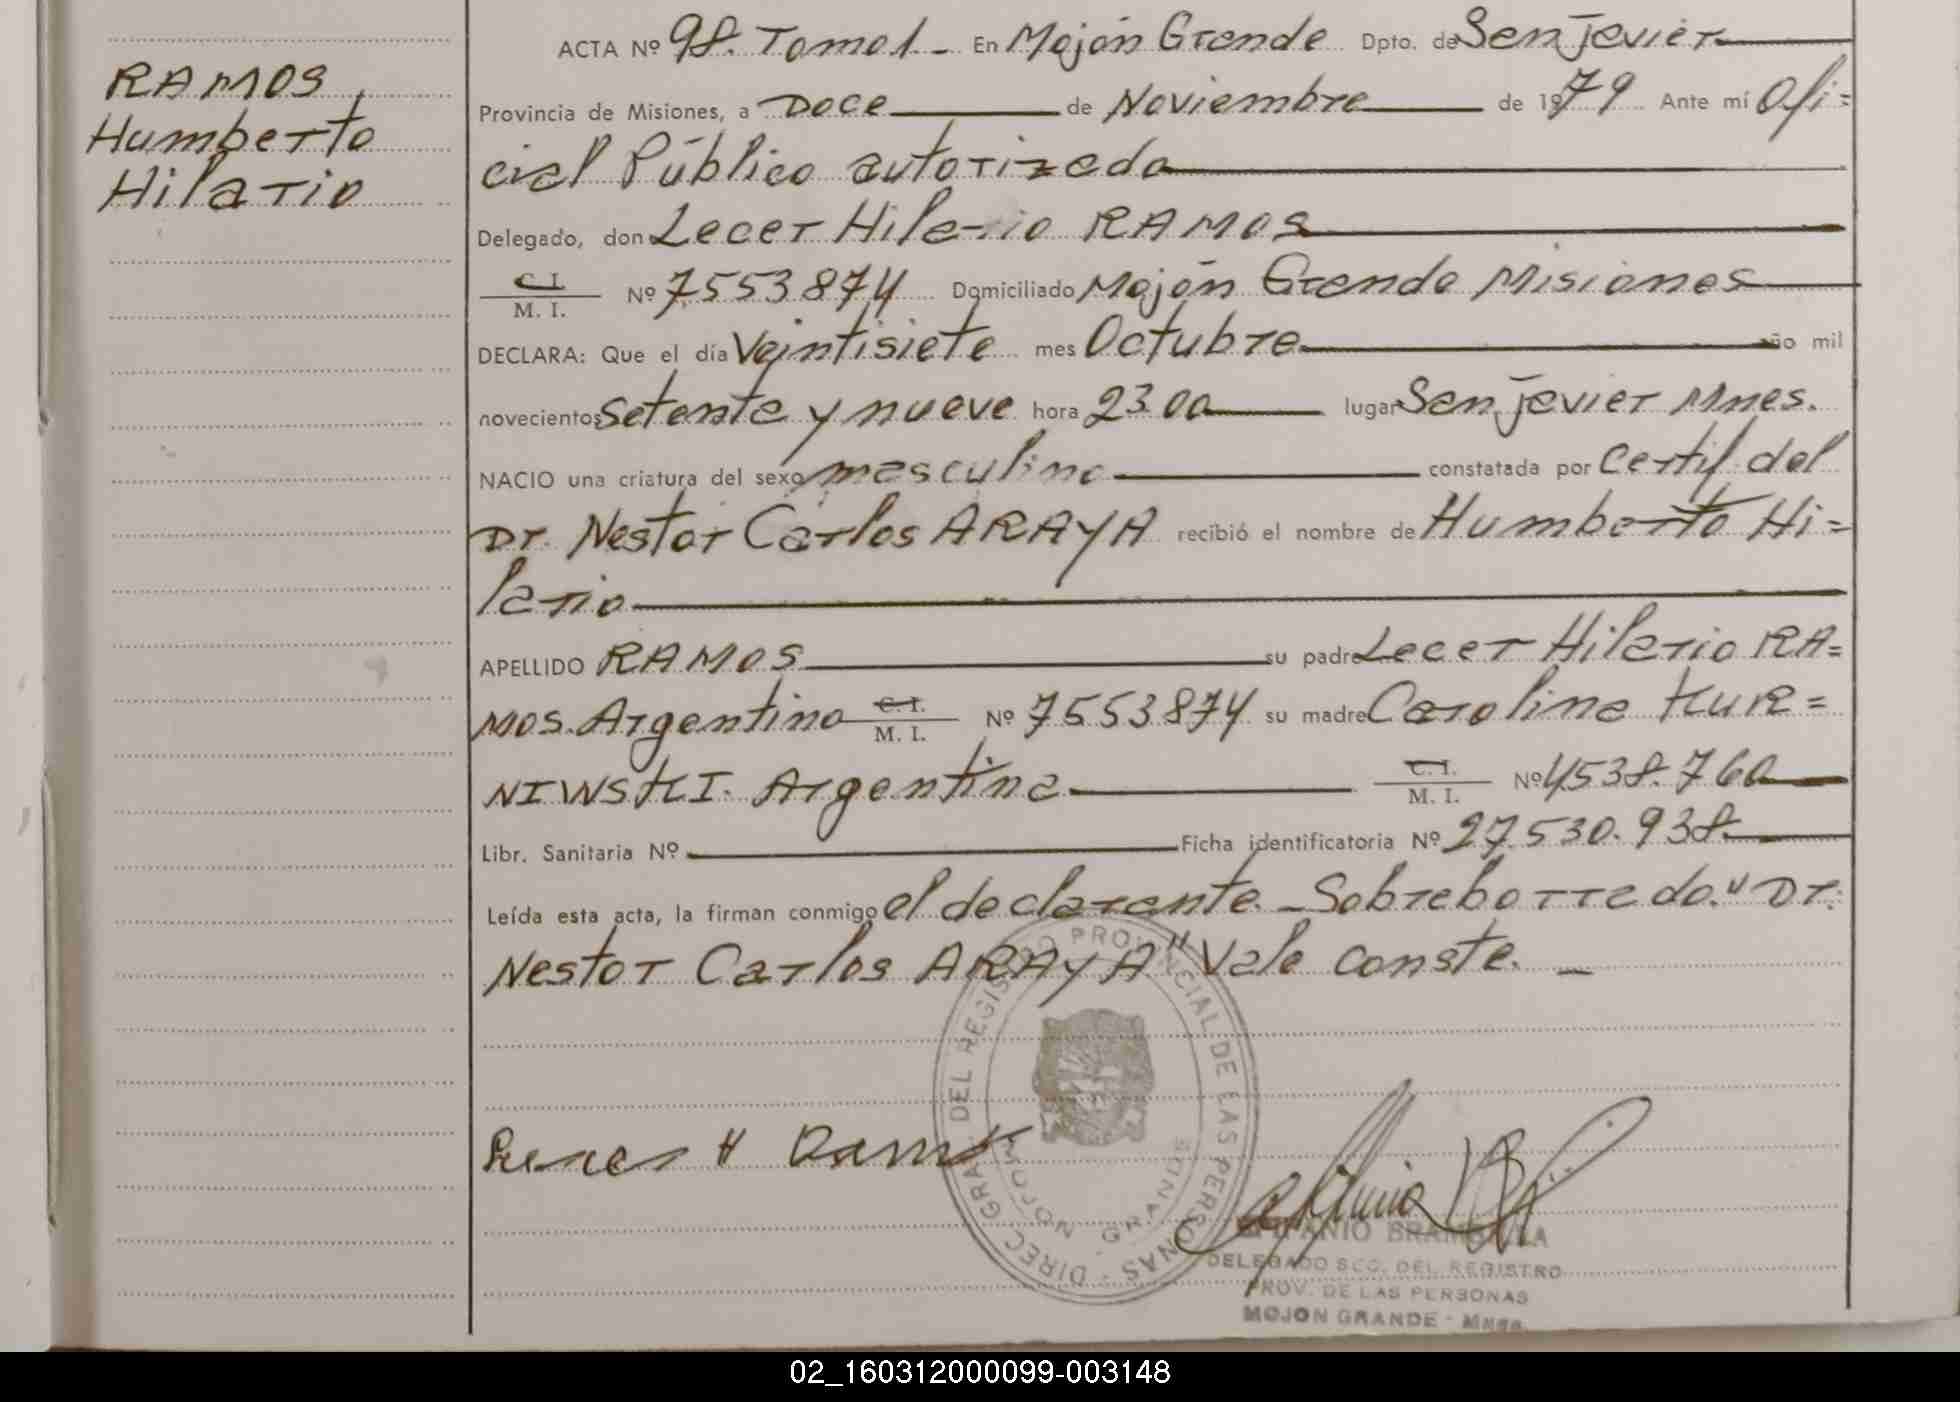 RAMOS
Humberto
Hilario
ACTA Nº 98. Tomo 1 - En Mojón Grande Dpto. de San Javier
Provincia de Misiones, a Doce de Noviembre de 1979 Ante mí Ofi=
cial Público autorizado
Delegado, don Lecer Hilario RAMOS
C. I.
M. I. Nº 7553874 Domiciliado Mojón Grande Misiones
DECLARA: Que el día Veintisiete mes Octubre año mil
novecientos Setenta y nueve hora 23.00 lugar San Javier Mnes.
NACIO una criatura del sexo masculino constatada por Certif. del
Dr. Nestor Carlos ARAYA recibió el nombre de Humberto Hi=
lario
APELLIDO RAMOS su padre Lecer Hilario RA=
MOS. Argentino C. I. M. I. Nº 7553874 su madre Carolina KUR=
NIWSKI. Argentina C. I. M. I. Nº 4538.760
Libr. Sanitaria Nº Ficha identificatoria Nº 27.530.938
Leída esta acta, la firman conmigo el declarante. - Sobreborrado." Dr.
Nestor Carlos ARAYA" Vale conste. -
DIREC. GRAL. DEL REGISTRO PROVINCIAL DE LAS PERSONAS
MOJON GRANDE
H Ramos
EPIFANIO BRAMBILLA
DELEGADO SCC. DEL REGISTRO
PROV. DE LAS PERSONAS
MOJON GRANDE - Mnes.
02_160312000099-003148